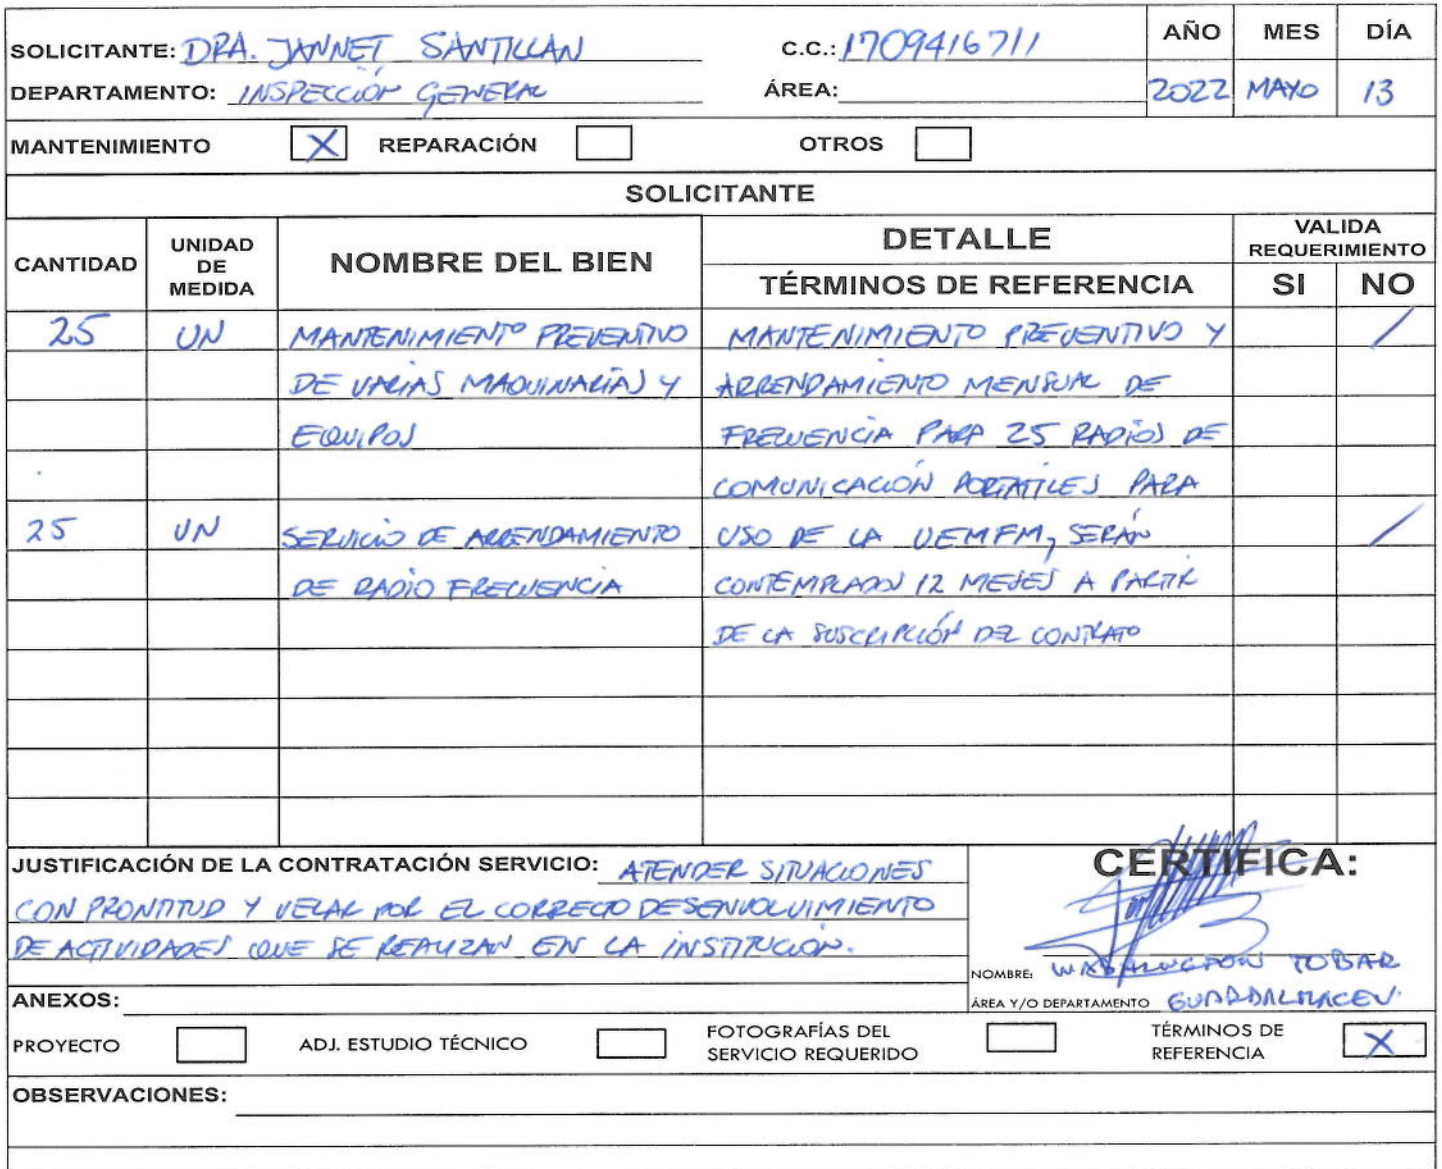 SOLICITANTE: DRA. JANNET SANTILLAN C.C.: 1709416711 AÑO MES DÍA
DEPARTAMENTO: INSPECCIÓN GENERAL ÁREA: 2022 MAYO 13
MANTENIMIENTO X REPARACIÓN OTROS
SOLICITANTE
CANTIDAD UNIDAD DE MEDIDA NOMBRE DEL BIEN DETALLE VALIDA REQUERIMIENTO
TÉRMINOS DE REFERENCIA SI NO
25 UN MANTENIMIENTO PREVENTIVO MANTENIMIENTO PREVENTIVO Y /
DE VARIAS MAQUINARIAS Y ARRENDAMIENTO MENSUAL DE
EQUIPOS FRECUENCIA PARA 25 RADIOS DE
COMUNICACIÓN PORTATILES PARA
25 UN SERVICIO DE ARRENDAMIENTO USO DE LA UEMFM, SERÁN /
DE RADIO FRECUENCIA CONTEMPLADOS 12 MESES A PARTIR
DE LA SUSCRIPCIÓN DEL CONTRATO
JUSTIFICACIÓN DE LA CONTRATACIÓN SERVICIO: ATENDER SITUACIONES
CON PRONTITUD Y VELAR POR EL CORRECTO DESENVOLVIMIENTO
DE ACTIVIDADES QUE SE REALIZAN EN LA INSTITUCIÓN.
CERTIFICA:
NOMBRE: WASHINGTON TOBAR
ANEXOS:
ÁREA Y/O DEPARTAMENTO GUARDALMACEN.
PROYECTO ADJ. ESTUDIO TÉCNICO FOTOGRAFÍAS DEL SERVICIO REQUERIDO TÉRMINOS DE REFERENCIA X
OBSERVACIONES: